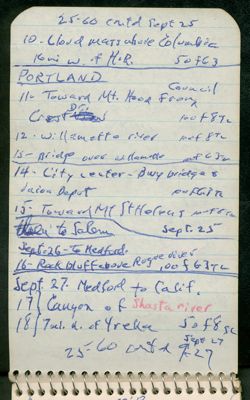 25-60 contd Sept 25
10- Cloud mass above Columbia
10mi w. of H.R. 50 f 63
PORTLAND
11- Toward Mt. Hood From Council
Crest Dr.
12. Willamette river
13- Bridge over Willamette
14- City center - Bwy bridge &
Union Depot
15- Toward Mt St Helens
to Salem Sept. 25
Sept. 26- To Medford.
16- Rock bluff above Rogue river
Sept. 27- Medford to Calif.
17 Canyon of Shasta river
18 7mi. n. of Yreka 50 f 8
Sept 27
25-60 contd 9-27